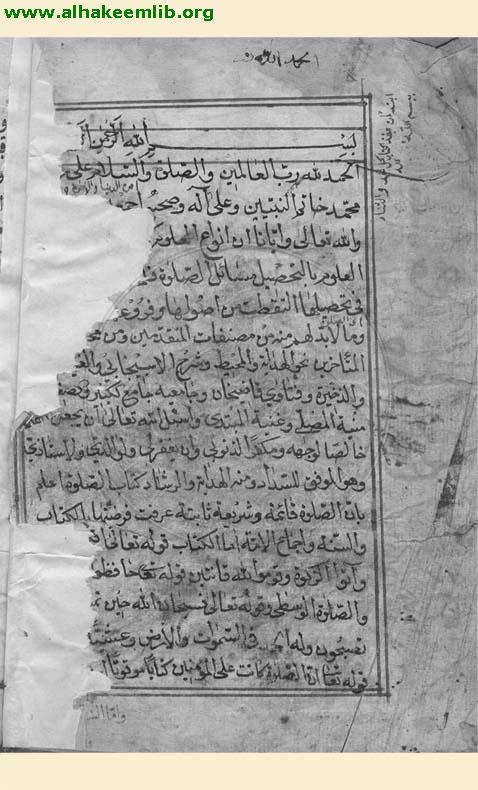 www.alhakeemlib.org
الحمد لله
بسم الله الرحمن
الحمد لله رب العالمين والصلوة والسلام على
محمد خاتم النبيين وعلى آله وصحبه
والله تعالى وايانا ان انواع العلوم
العلوم بالتحصيل مسائل الصلوة
في تحصيلها التقطت من اصولها وفروع
وما لابد لهم منه من مصنفات المتقدمين ومن
المتأخرين نحو الهداية والمحيط وشرح الاسبيجابي
والذخيرة وفتاوى قاضيخان وجامعه
منية المصلي وغنية المبتدي واسئل الله تعالى ان يجعل
خالصا لوجهه ومكفرا لذنوبي وان يغفر لي ولوالدي ولاستاذي
وهو الموفق للسداد ومنه الهداية والرشاد كتاب الصلوة اعلم
بان الصلوة فائمة وشريعة ثابتة عرفت فرضيتها بالكتاب
والسنة واجماع الامة اما الكتاب قوله تعالى
وآتوا الزكوة وقوموا لله قانتين قوله تعالى حافظوا
والصلوة الوسطى وقوله تعالى فسبحان الله حين
تصبحون وله الحمد في السموات والارض وعشيا
قوله تعالى ان الصلوة كانت على المؤمنين كتابا موقوتا